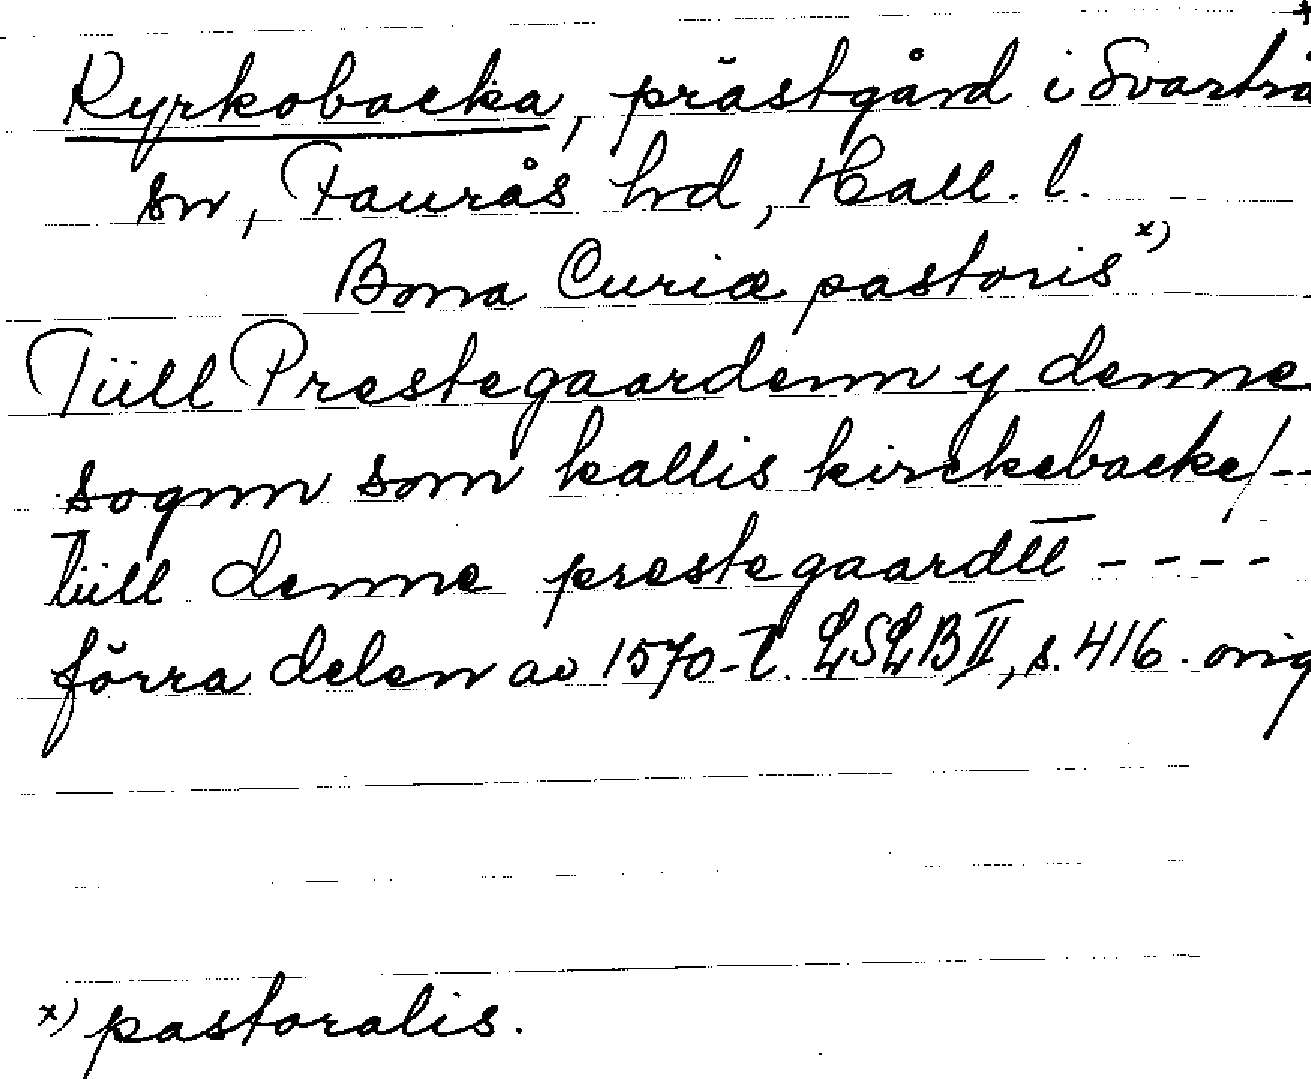 Kyrkobacka, prästgård i Svartrå
sn, Faurås hrd, Hall. l.
Bona Curiæ pastoris x)
Tüll Prestegaardenn y denne
sognn som kallis kirckebacke/--
tüll denne prestegaardtt ----
förra delen av 1570-t. LSLB II, s. 416. orig
x) pastoralis.